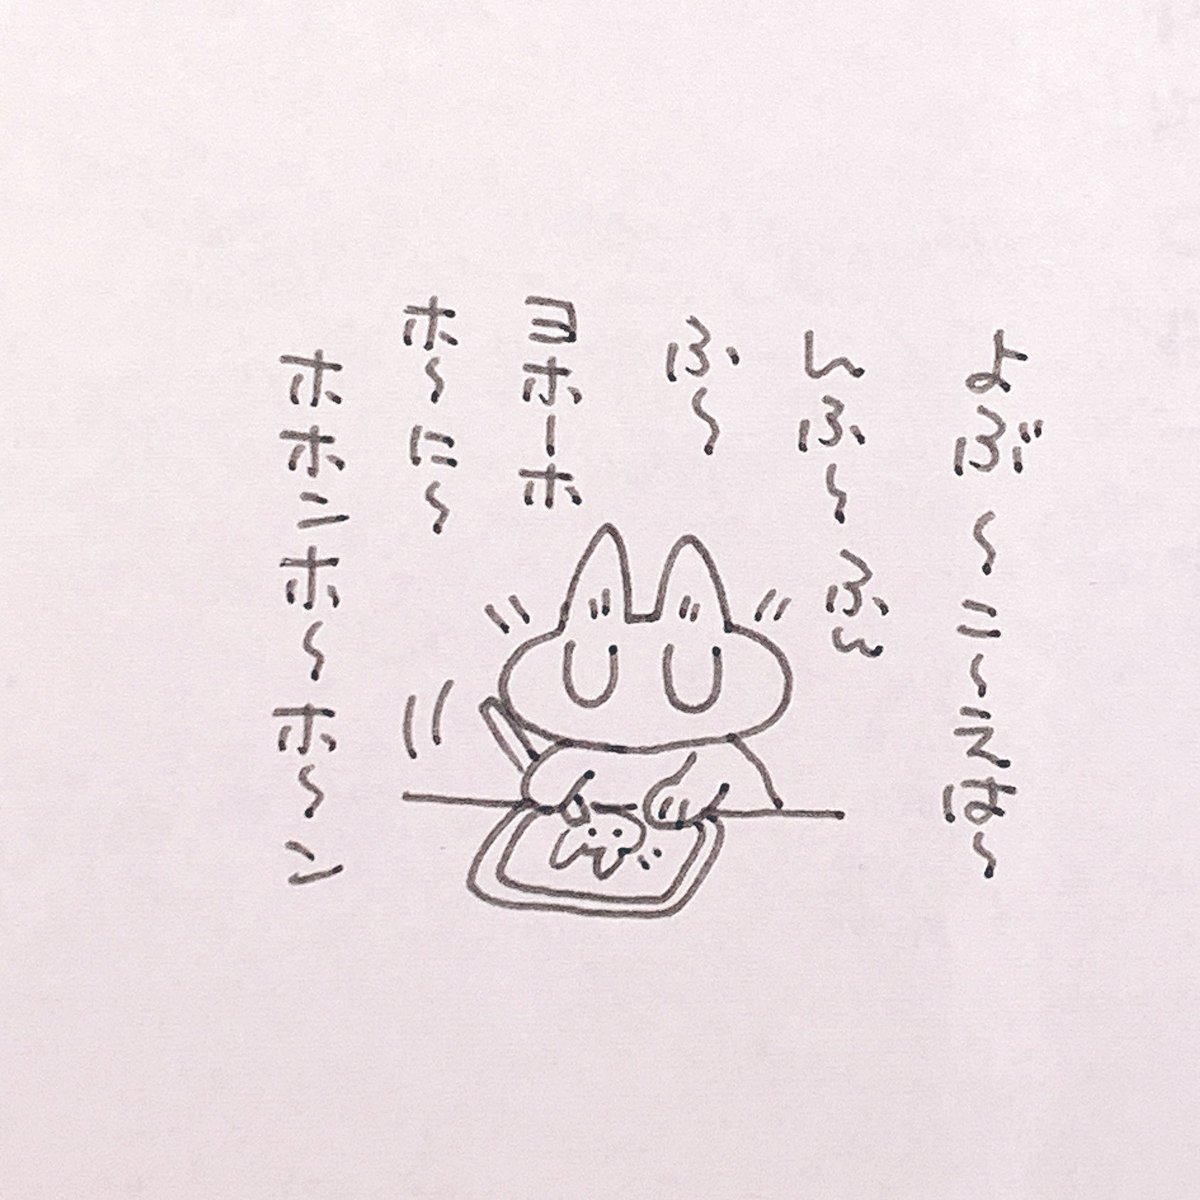 よぶ〜こ〜えは〜
んふ〜ふん
ふ〜
ヨホーホ
ホ〜に〜
ホホンホ〜ホ〜ン